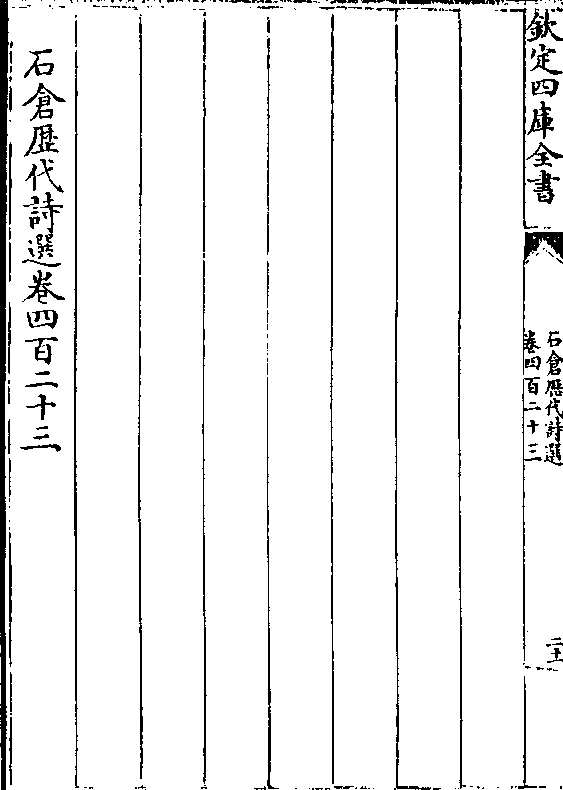 欽定四庫全書
石倉歷代詩選
卷四百二十三
石倉歷代詩選卷四百二十三